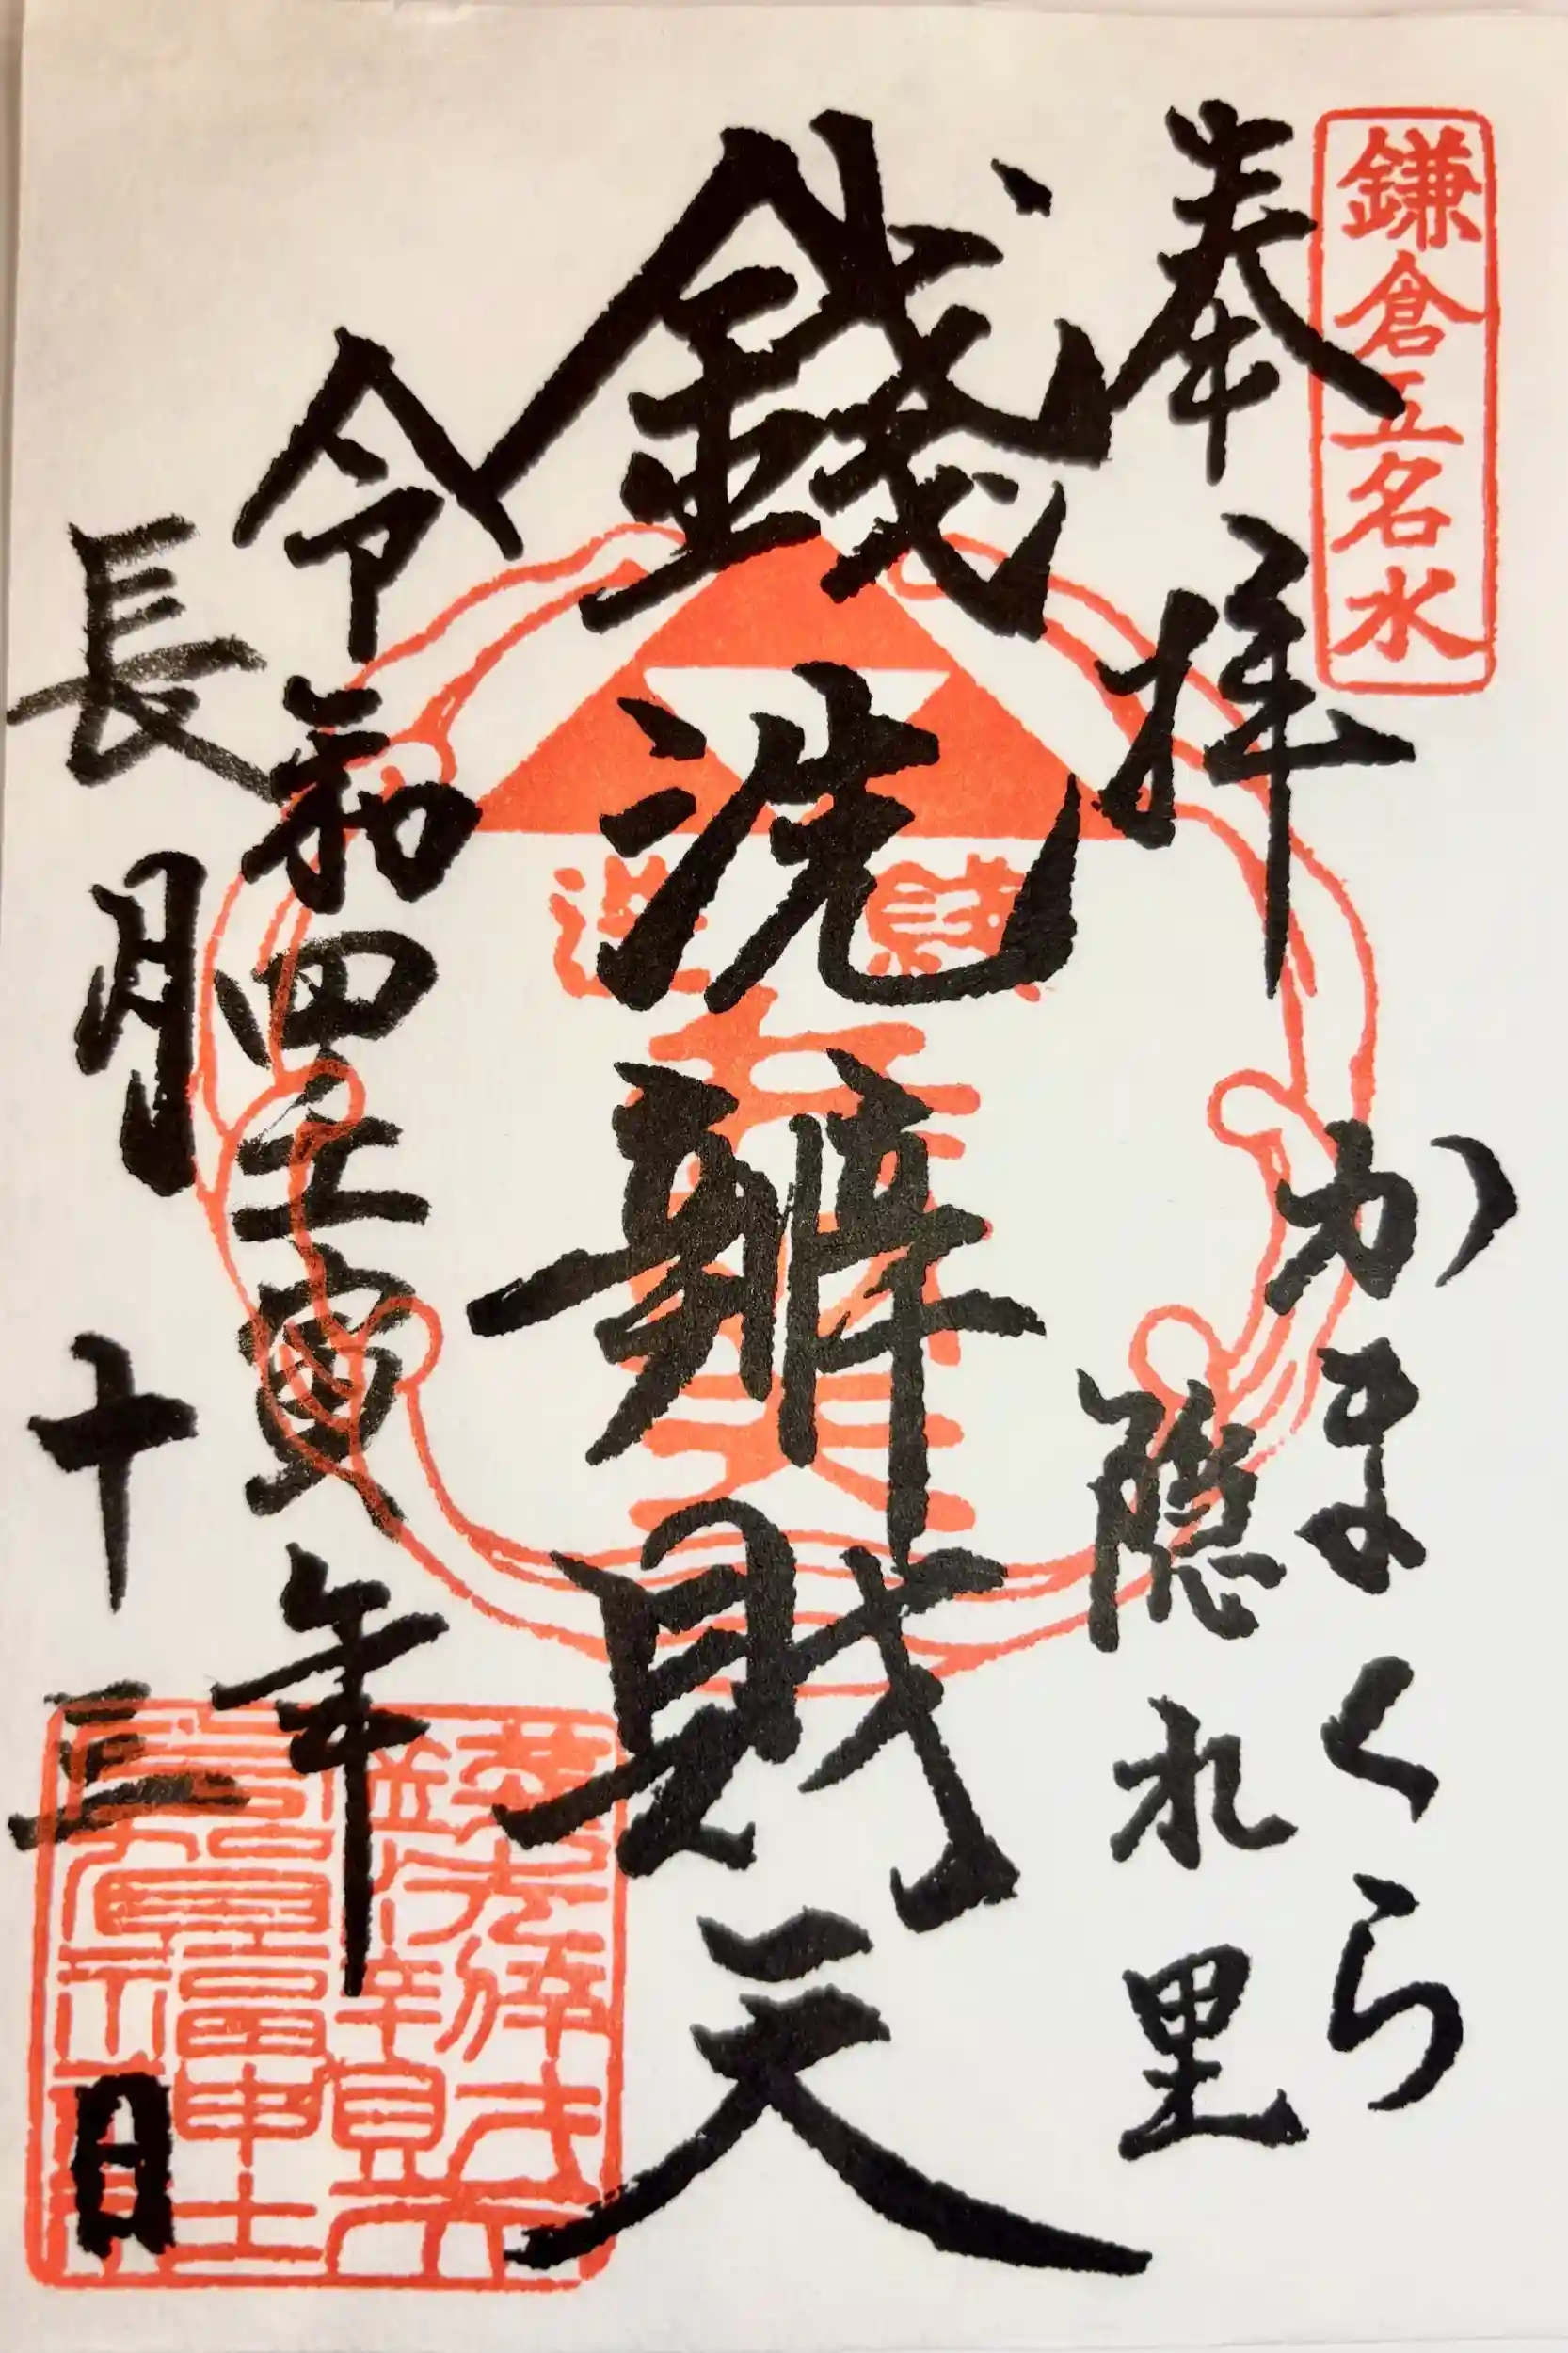 鎌倉五名水
奉拝
かまくら
隠れ里
銭洗辨財天
令和四壬寅年
長月十三日